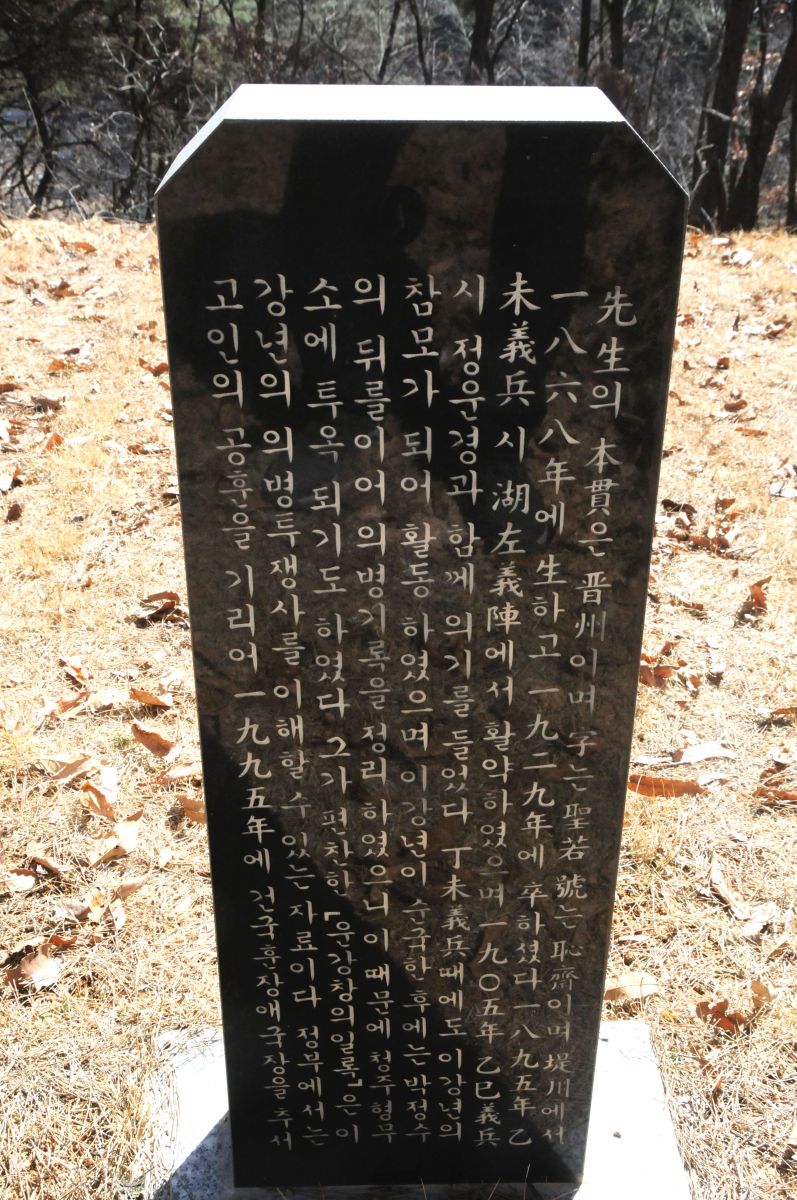 先生의 本貫은 晋州이며 字는 聖若 號는 恥齋이며 堤川에서
一八六八年에 生하고 一九二九年에 卒하셨다 一八九五年 乙
未義兵시 湖左義陣에서 활약하였으며 一九〇五年 乙巳義兵
시 정운경과 함께 의기를 들었다 丁未義兵때에도 이강년의
참모가 되어 활동 하였으며 이강년이 순국한 후에는 박정수
의 뒤를이어 의병기록을 정리 하였으니 이 때문에 청주형무
소에 투옥 되기도 하였다 그가 편찬한 「운강창의일록」은 이
강년의 의병투쟁사를 이해할 수 있는 자료이다 정부에서는
고인의 공훈을 기리어 一九九五年에 건국훈장애국장을 추서